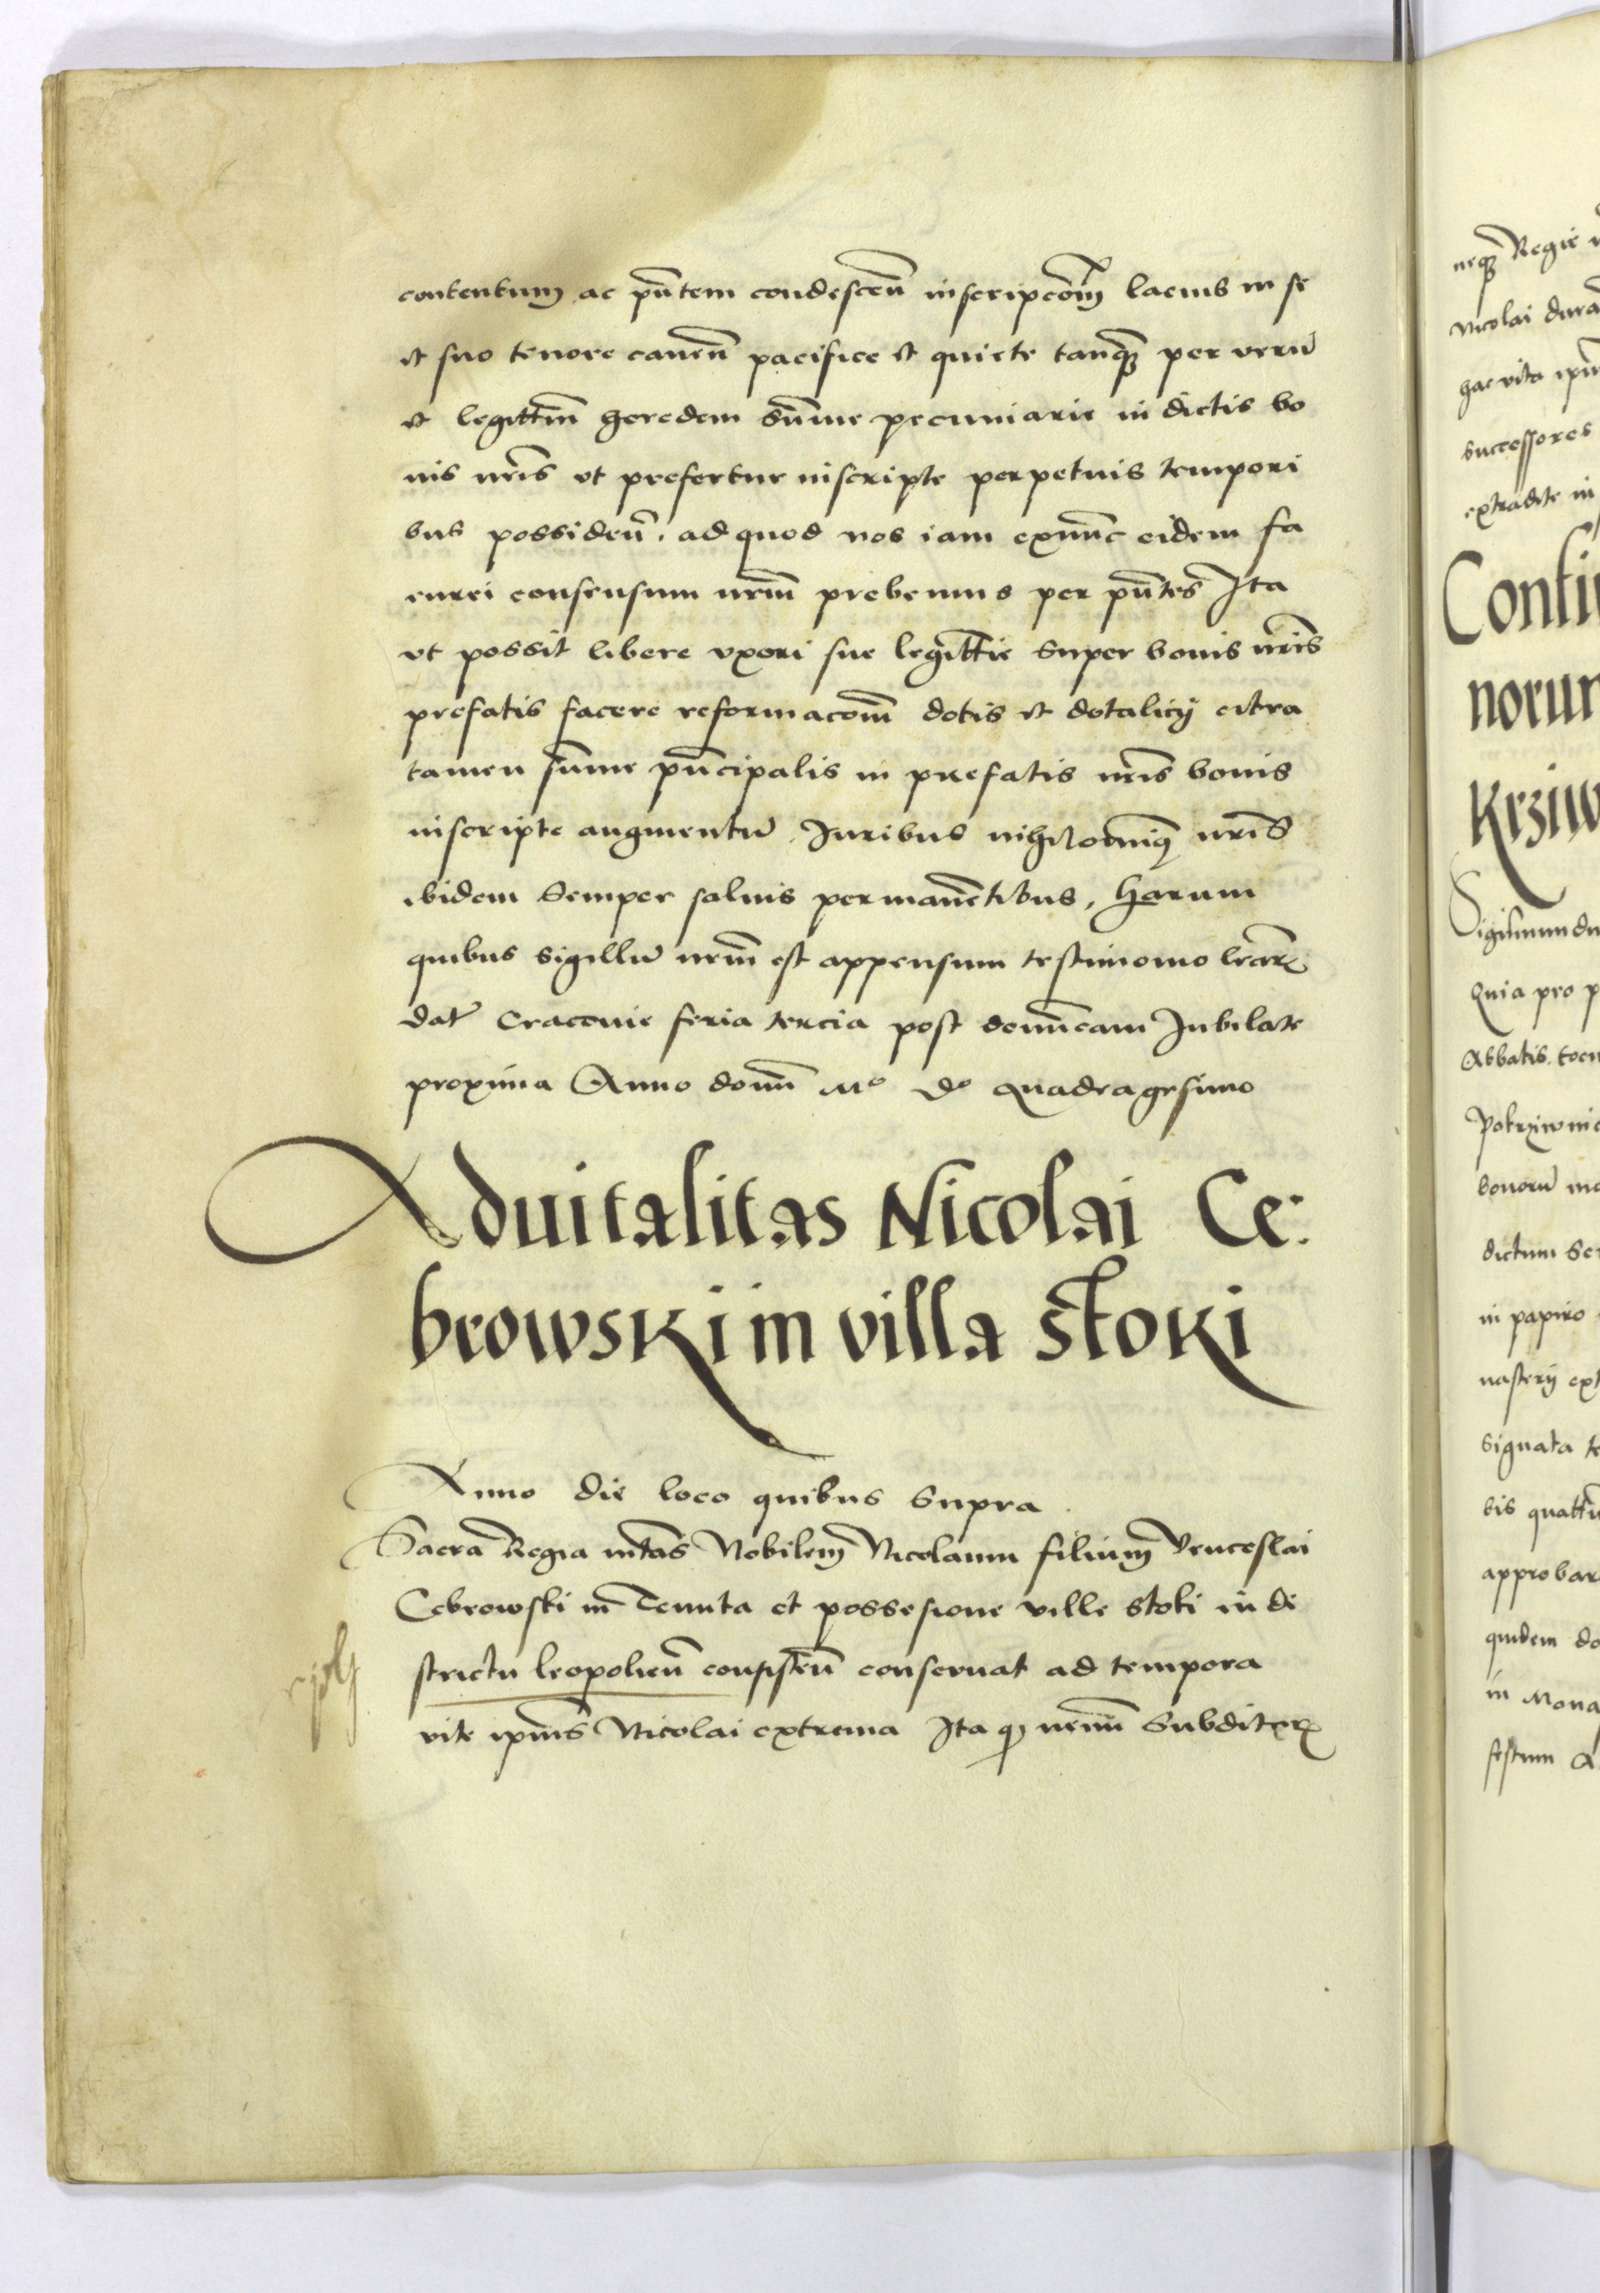 contentum ac pūtem condescēn inscripcōm lacius in se
et suo tenore canēn pacifice et quiete tanq̄ per verū
et legittm̄ heredem sūme pecuniarie in dictis bo
nis nr̄is ut prefertur inscripte perpetuis tempori
bus possidēn. ad quod nos iam exnūc eidem fa
enrei consensum nrm̄ prebemus per pūtes Ita
ut possit libere uxori sue legittīe super bonis nr̄is
prefatis facere reformacōm dotis et dotalicij citra
tamen sūme pn̄cipalis in prefatis nr̄is bonis
inscripte augmentū. Iuribus nihilominq nr̄is
ibidem semper saluis permanētibus, harum
quibus sigillū nrm̄ est appensum testimonio lrār
dat Cracouie feria tercia post domīcam Iubilate
proxima Anno domī Mº dº quadragesimo
Aduitalitas Nicolai Ce:
browski in villa Stoki
Anno die loco quibus supra
Sacra Regia mtās Nobilem Nicolaum filium Venceslai
Cebrowski in Tenuta et possesione ville stoki in di
strictu leopoliēn consistēn conseruat ad tempora
vite ipīus Nicolai extrema Ita q nemī subditor
neq̄ Regie
Nicolai dura
hac vita ipī
successores
extradite in
Conti
norum
Krziw
Sigismundu
Quia pro p
Abbatis
Pokrziwnic
bonorū mo
dictum se
in papiro
nasterij ext
signata te
bis quattu
approbar
quidem do
in Mona
festum